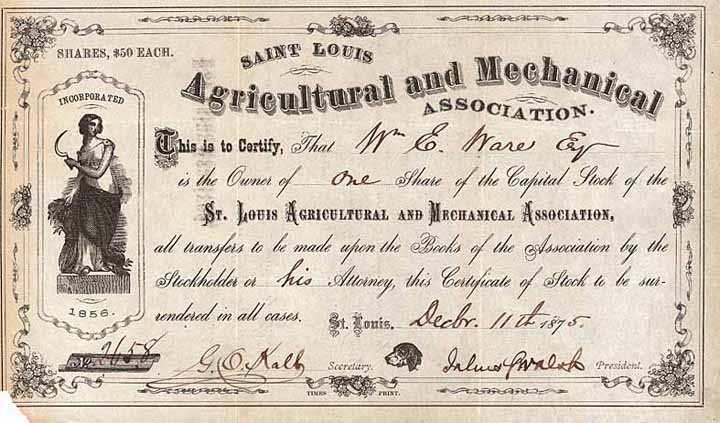 SHARES, $50 EACH.
SAINT LOUIS
Agricultural and Mechanical
ASSOCIATION.
INCORPORATED
1856.
This is to Certify, That Wm E. Ware Esq
is the Owner of one Share of the Capital Stock of the
ST. LOUIS AGRICULTURAL AND MECHANICAL ASSOCIATION,
all transfers to be made upon the Books of the Association by the
Stockholder or his Attorney, this Certificate of Stock to be sur-
rendered in all cases. St. Louis, Decbr. 11th 1875.
No. 2658 G. O. Kalb Secretary. Julius Walsh President.
TIMES PRINT.